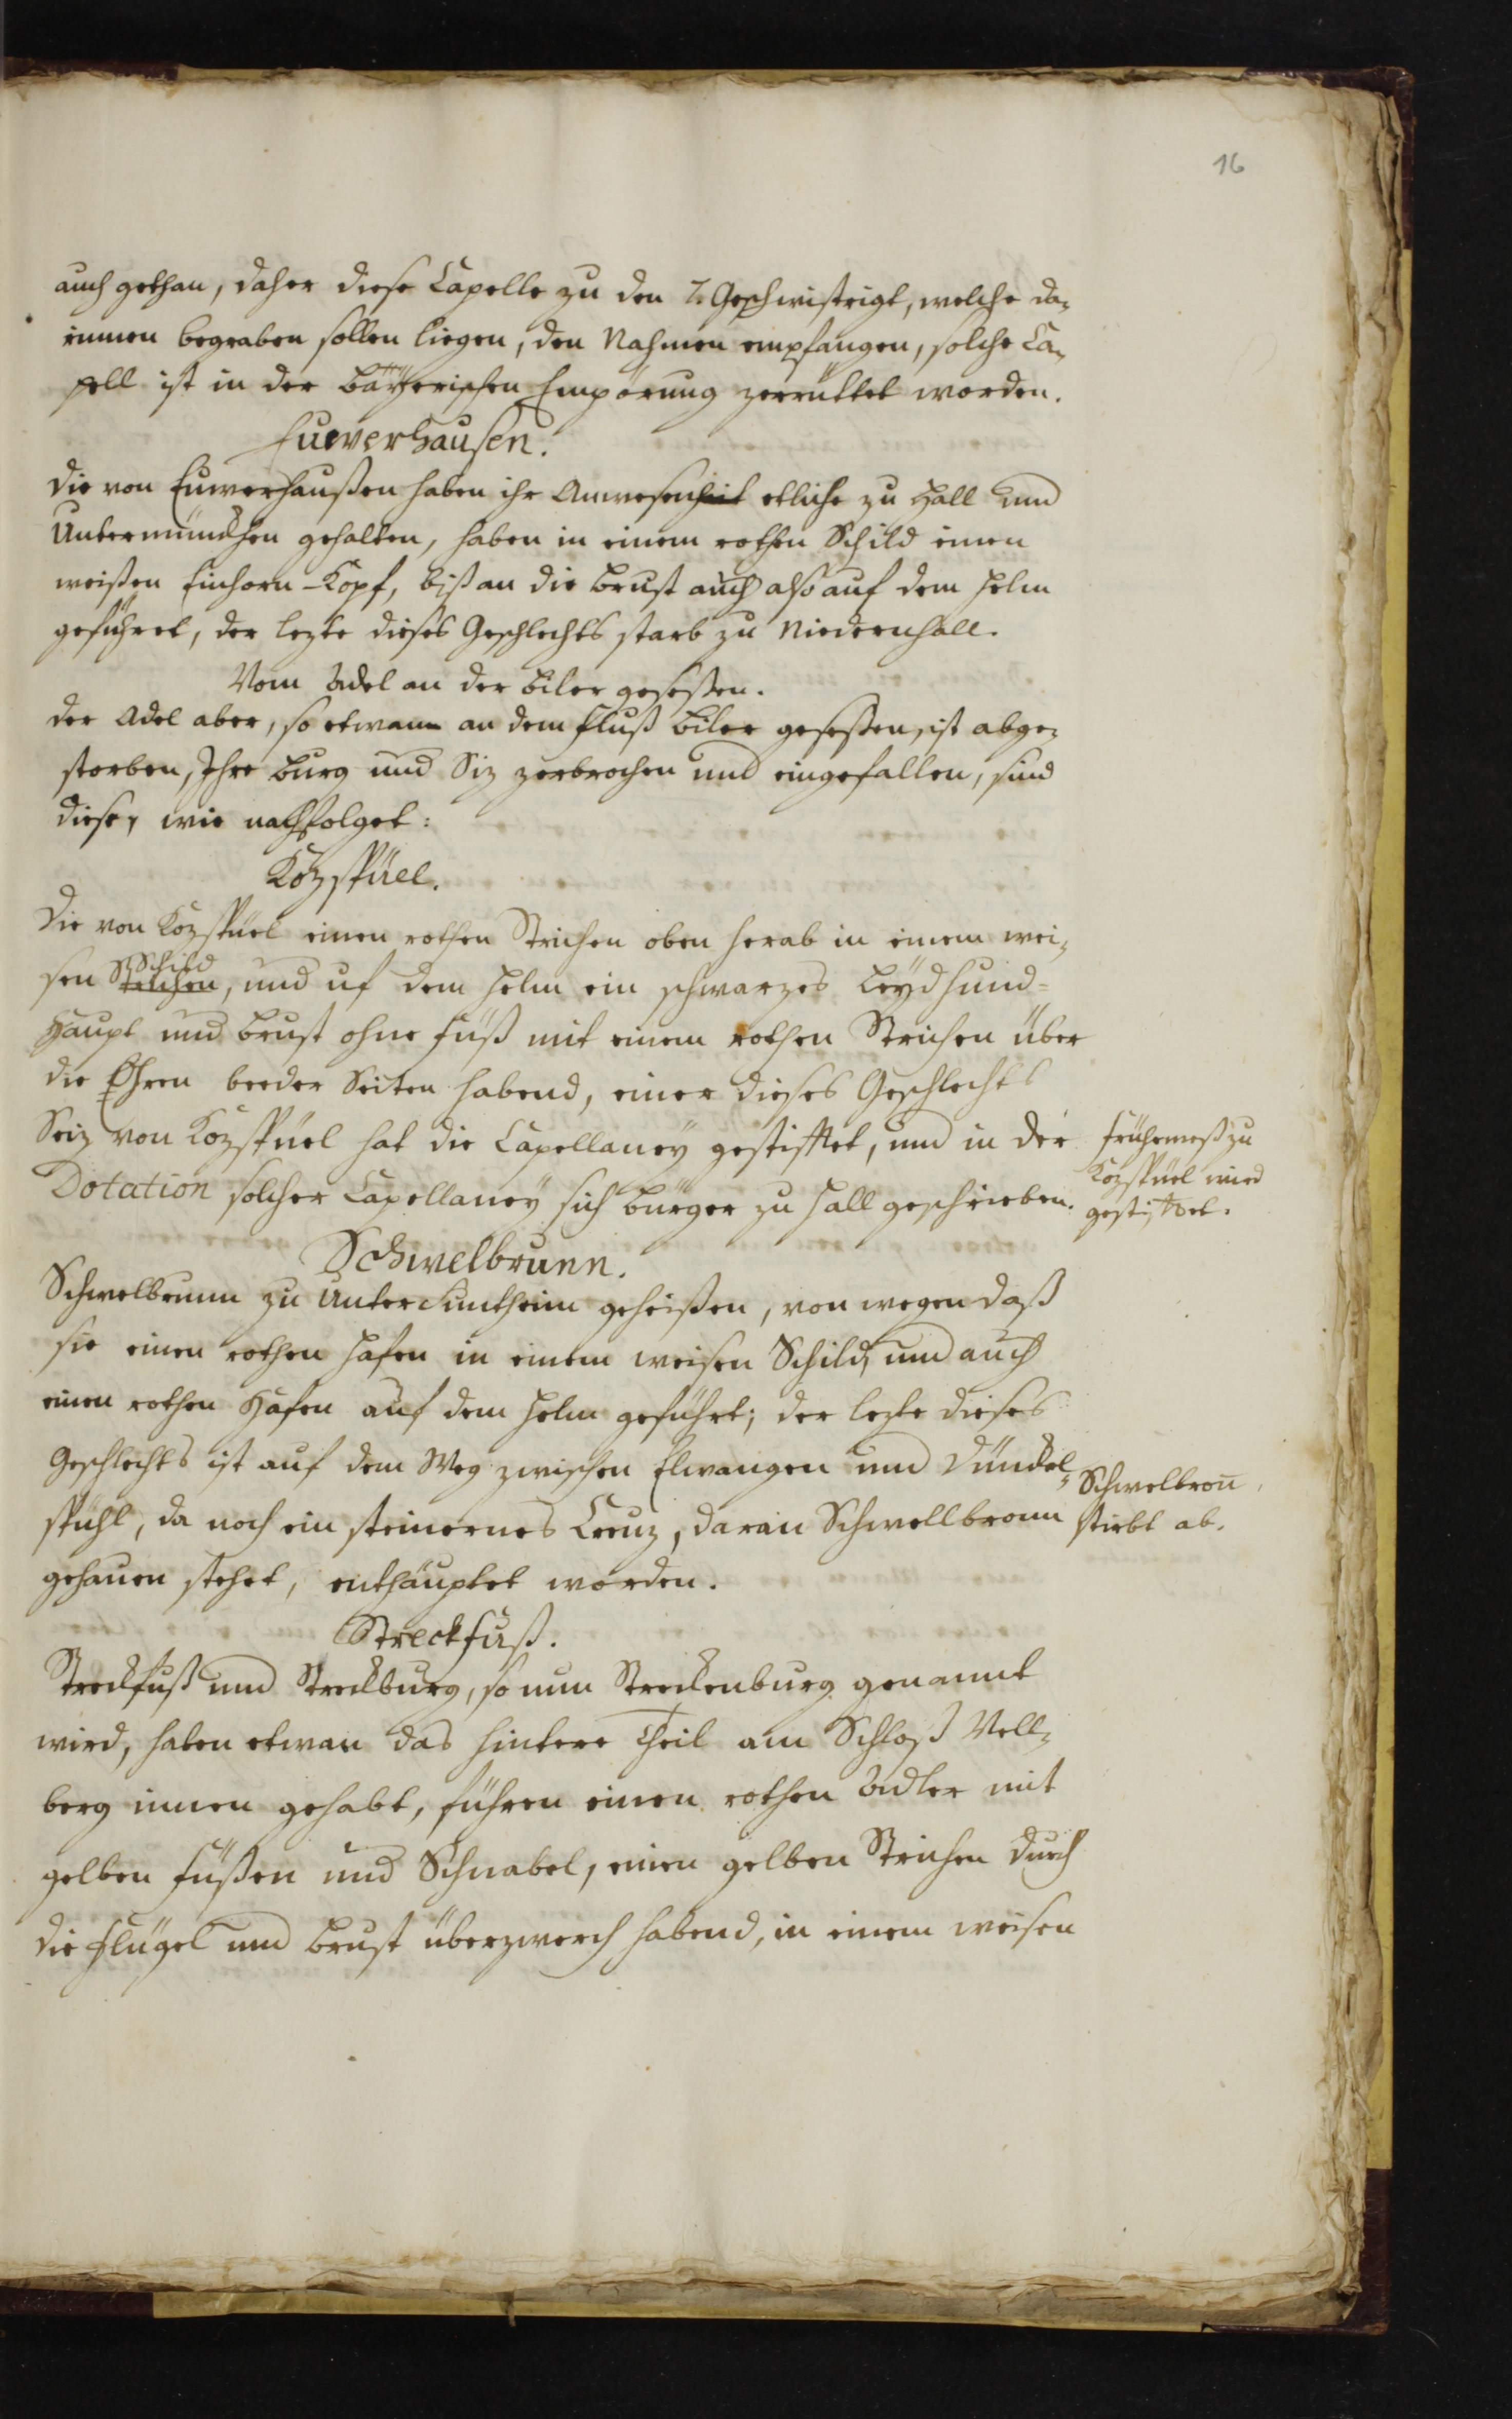 16
auch gethan, daher diese Capelle zu den 7. Geschwistrigt, welche da-
rinnen begraben sollen liegen, den Nahmen empfangen, solche Ca-
pell ist in der bäyerischen Empörung zerrüttet worden.
Euwerhausen.
Die von Euwerhaußen haben ihr Anwesenheit etliche zu Hall und
Untermünckhen gehalten, haben in einem rothen Schild einen
weißen Einhorn-Kopf, biß an die Brust auch also auf dem Helm
geführet, der lezte dieses Geschlechts starb zu Niedernhall.
Vom Adel an der Biler geseßen.
Der Adel aber, so etwann an dem Fluß Biler geseßen, ist abge-
storben, Ihre Burg und Siz zerbrochen und eingefallen, sind
diese, wie nachfolget:
Kozspüel.
Die von Kozspüel einen rothen Strichen oben herab in einem wei-
sen Strichen Schild, und uf dem Helm ein schwarzes Leydhund-
Haupt und Brust ohne Füß mit einem rothen Strichen über
die Ohren beeder Seiten habend, einer dieses Geschlechts
Seiz von Kozspüel hat die Capellaney gestifftet, und in der
Dotation solcher Capellaney sich Bürger zu Hall geschrieben.
Frühemeß zu
Kozspüel wird
gestifftet.
Schwelbrunn.
Schwelbrunn zu Untersuntheim geheißen, von wegen daß
sie einen rothen Hafen in einem weisen Schild, und auch
einen rothen Hafen auf dem Helm geführt; der lezte dieses
Geschlechts ist auf dem Weg zwischen Elwangen und Dünckel-
spühl, da noch ein steinernes Creuz, daran Schwellbronn
gehauen stehet, enthäuptet worden.
Schwelbron̄
stirbt ab.
Streckfuß.
Streckfuß und Streckburg, so nun Streckenburg genannt
wird, haben etwan das hintere Theil am Schloß Vell-
berg innen gehabt, führen einen rothen Adler mit
gelben Füßen und Schnabel, einen gelben Strichen durch
die Flügel und Brust überzwerch habend, in einem weisen